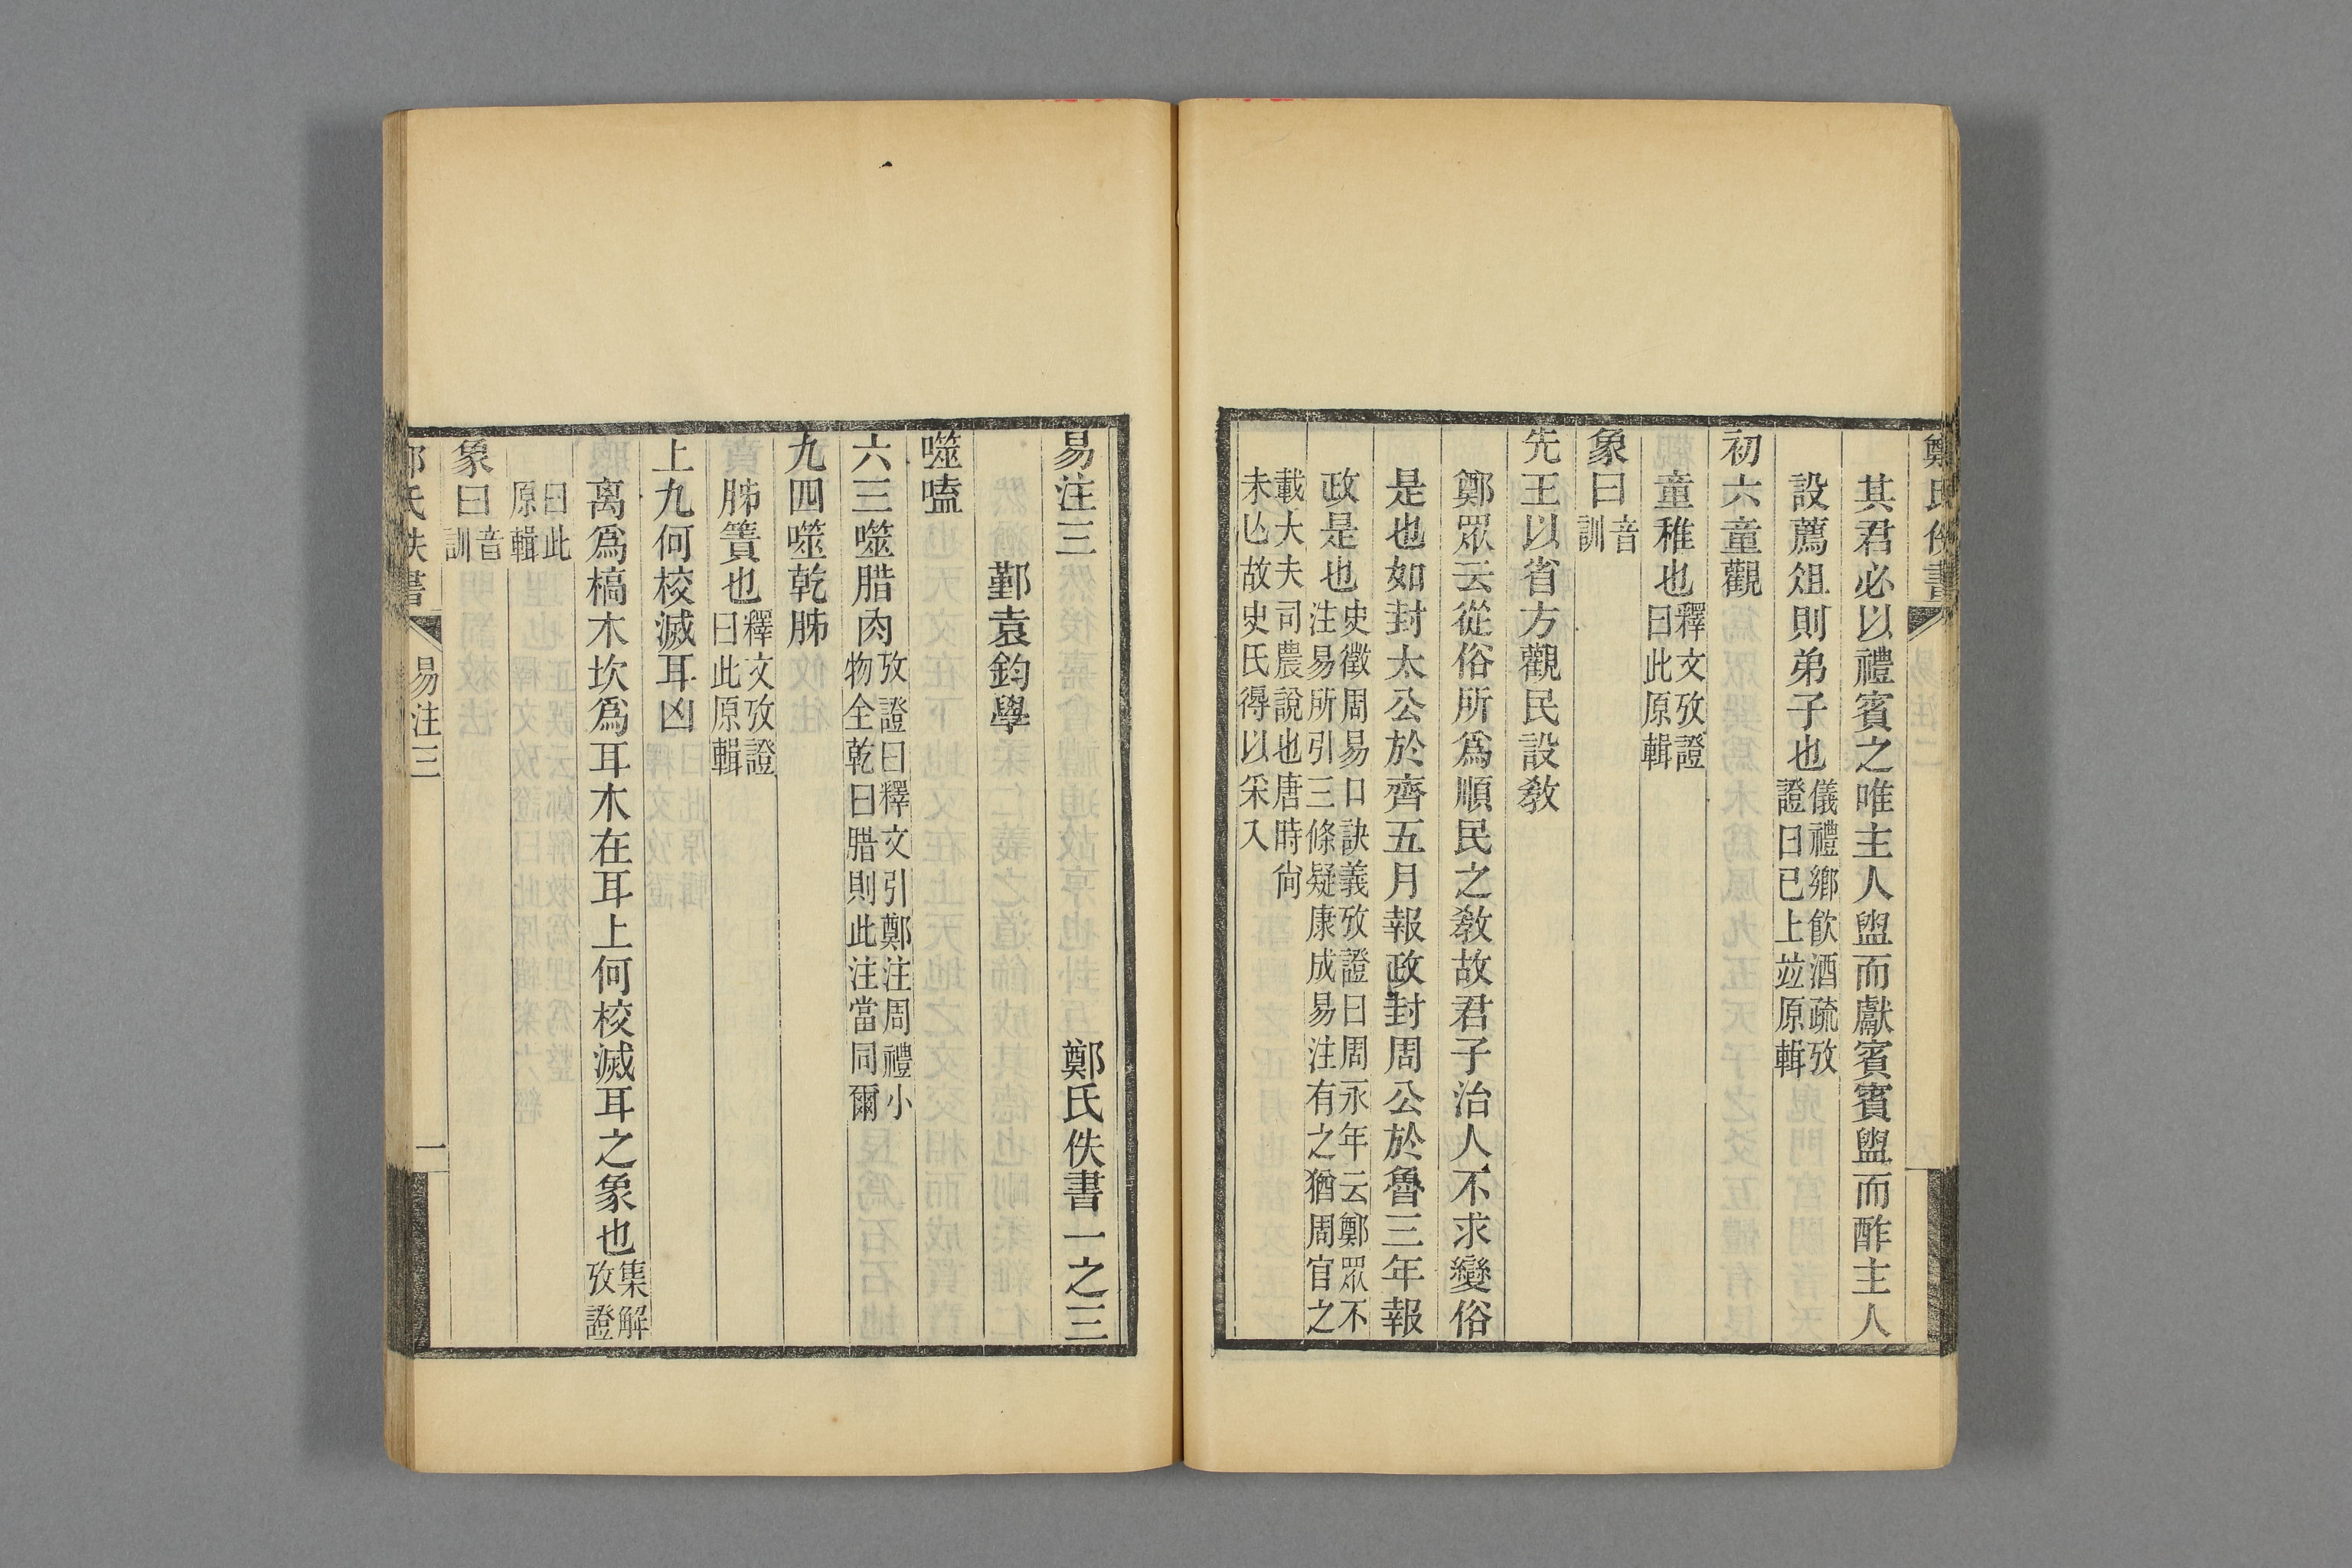 其君必以禮賓之唯主人盥而獻賓賓盥而酢主人
設薦俎則弟子也儀禮鄉飲酒疏攷
證曰已上竝原輯
初六童觀
童稚也釋文攷證
曰此原輯
象曰音
訓
先王以省方觀民設敎
鄭眾云從俗所爲順民之敎故君子治人不求變俗
是也如封太公於齊五月報政封周公於魯三年報
政是也史徵周易口訣義攷證曰周永年云鄭眾不
注易所引三條疑康成易注有之猶周官之
載大夫司農說也唐時尙
未亾故史氏得以采入
易注三 鄭氏佚書一之三
鄞袁鈞學
噬嗑
六三噬腊肉攷證曰釋文引鄭注周禮小
物全乾曰腊則此注當同爾
九四噬乾胏
胏簀也釋文攷證
曰此原輯
上九何校滅耳凶
离爲槁木坎爲耳木在耳上何校滅耳之象也集解
攷證
曰此
原輯
象曰音
訓
易注三
一